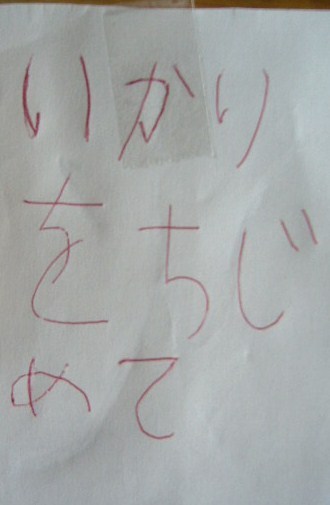 いかり
をちじ
めて